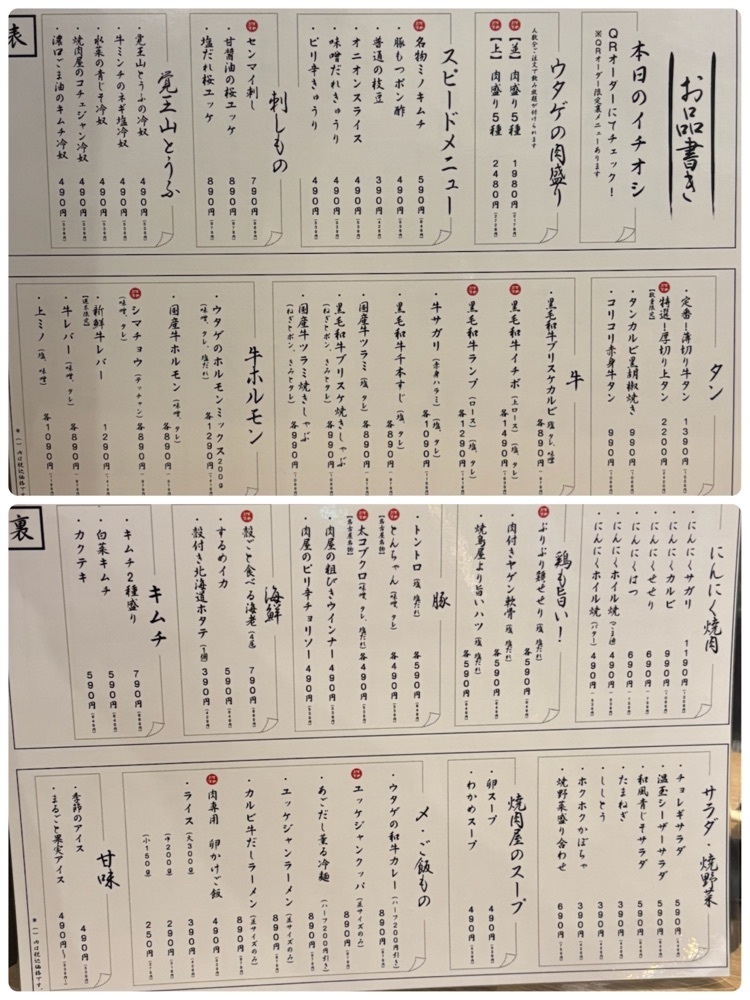 表
お品書き
本日のイチオシ
QRオーダーにてチェック!
※QRオーダー限定裏メニューあります
ウタゲの肉盛り
【並】肉盛り5種 1980円
【上】肉盛り5種 2480円
スピードメニュー
・名物ミノキムチ 590円
・豚もつポン酢 490円
・普通の枝豆 390円
・オニオンスライス 490円
・味噌だれきゅうり 490円
・ピリ辛きゅうり 490円
刺しもの
・センマイ刺し 790円
・甘醤油の桜ユッケ 890円
・塩だれ桜ユッケ 890円
覚王山とうふ
・覚王山とうふの冷奴 490円
・牛ミンチのネギ塩冷奴 490円
・水菜の青じそ冷奴 490円
・焼肉屋のコチュジャン冷奴 490円
・濃口ごま油のキムチ冷奴 490円
タン
・定番!薄切り牛タン 1390円
・特選!厚切り上タン 2200円
【数量限定】
・タンカルビ黒胡椒焼き 990円
・コリコリ赤身牛タン 990円
牛
・黒毛和牛ブリスケカルビ(塩、タレ、味噌) 各890円
・黒毛和牛イチボ(上ロース)(塩、タレ) 各1490円
・黒毛和牛ランプ(ロース)(塩、タレ) 各1290円
・牛サガリ(赤身ハラミ)(塩、タレ) 各1090円
・黒毛和牛千本すじ(塩、タレ) 各990円
・国産牛ツラミ(塩、タレ) 各890円
・黒毛和牛ブリスケ焼きしゃぶ 各990円
(ねぎとポン、きみとタレ)
・国産牛ツラミ焼きしゃぶ 各990円
(ねぎとポン、きみとタレ)
牛ホルモン
・ウタゲのホルモンミックス200g 各1290円
(味噌、タレ、塩だれ)
・国産牛ホルモン(味噌、タレ) 各890円
・シマチョウ(テッチャン) 各890円
(味噌、タレ)
・新鮮牛レバー 1290円
・牛レバー(味噌、タレ) 各890円
・上ミノ(塩、味噌) 各1090円
※( )内は税込価格です。
裏
にんにく焼肉
・にんにくサガリ 1190円
・にんにくカルビ 990円
・にんにくせせり 690円
・にんにくはつ 690円
・にんにくホイル焼(ごま油) 490円
・にんにくホイル焼(バター) 490円
鶏も旨い!
・ぷりぷり鶏せせり(塩、塩だれ) 各590円
・肉付きヤゲン軟骨(塩、塩だれ) 各590円
・焼鳥屋より旨いハツ(塩、塩だれ) 各590円
豚
・トントロ(塩、塩だれ) 各590円
・とんちゃん(味噌、タレ) 各490円
【名古屋名物】
・太コブクロ(味噌、タレ、塩だれ) 各490円
【名古屋名物】
・肉屋の粗びきウインナー 490円
・肉屋のピリ辛チョリソー 490円
海鮮
・殻ごと食べる海老(4尾) 790円
・するめイカ 590円
・殻付き北海道ホタテ(1個) 390円
キムチ
・キムチ2種盛り 790円
・白菜キムチ 590円
・カクテキ 590円
サラダ・焼野菜
・チョレギサラダ 590円
・温玉シーザーサラダ 590円
・和風青じそサラダ 590円
・たまねぎ 390円
・ししとう 390円
・ホクホクかぼちゃ 390円
・焼野菜盛り合わせ 690円
焼肉屋のスープ
・卵スープ 490円
・わかめスープ 490円
〆・ご飯もの
・ウタゲの和牛カレー(ハーフ200円引き) 890円
・ユッケジャンクッパ(並サイズのみ) 890円
・あごだし薫る冷麺(ハーフ200円引き) 890円
・ユッケジャンラーメン(並サイズのみ) 890円
・カルビ牛だしラーメン(並サイズのみ) 890円
・肉専用 卵かけご飯 490円
・ライス(大300g) 390円
(中200g) 290円
(小150g) 250円
甘味
・季節のアイス 490円
・まるごと果実アイス 490円〜
※( )内は税込価格です。